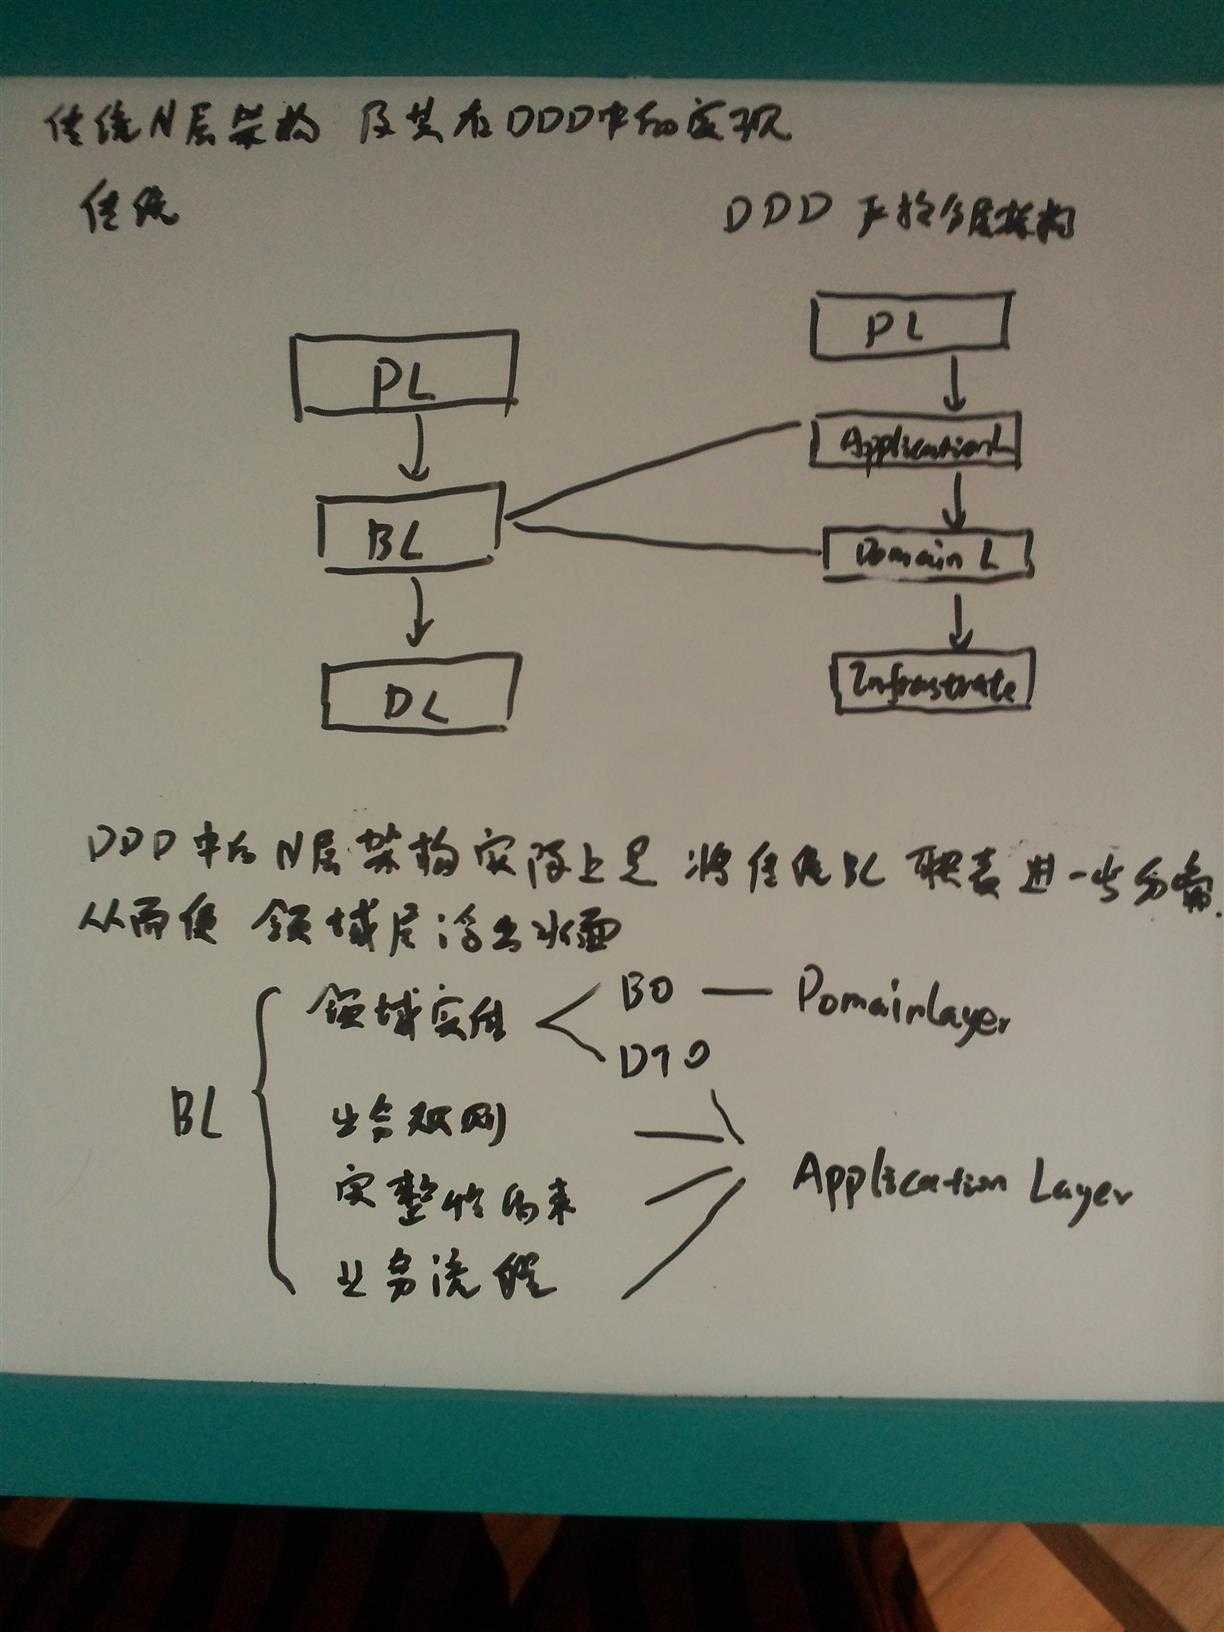 传统N层架构 及其在DDD中的实现
传统
DDD 严格分层架构
PL
BL
DL
PL
ApplicationL
Domain L
Infrastrate
DDD中的N层架构实际上是 将传统BL 职责进一步分离,
从而使 领域层浮出水面
BL
领域实体
BO
DTO
DomainLayer
业务规则
完整性约束
业务流程
Application Layer